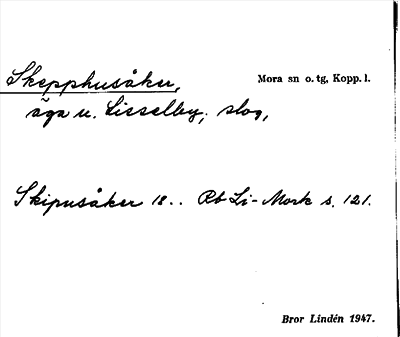 Skepphusåker, Mora sn o. tg, Kopp. l.
äga u. Lisselby, slog,
Skipusåker 18.. Rb Li-Mork s. 121.
Bror Lindén 1947.